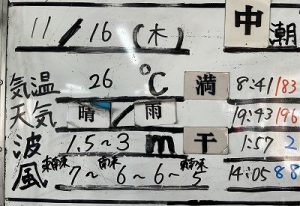 11/16(木) 中潮
気温 26℃ 満 8:41 183
天気 晴/雨 19:43 196
波 1.5~3m 干 1:57 2
風 東南東 7~ 南東 6~6~ 東南東 5 14:05 88